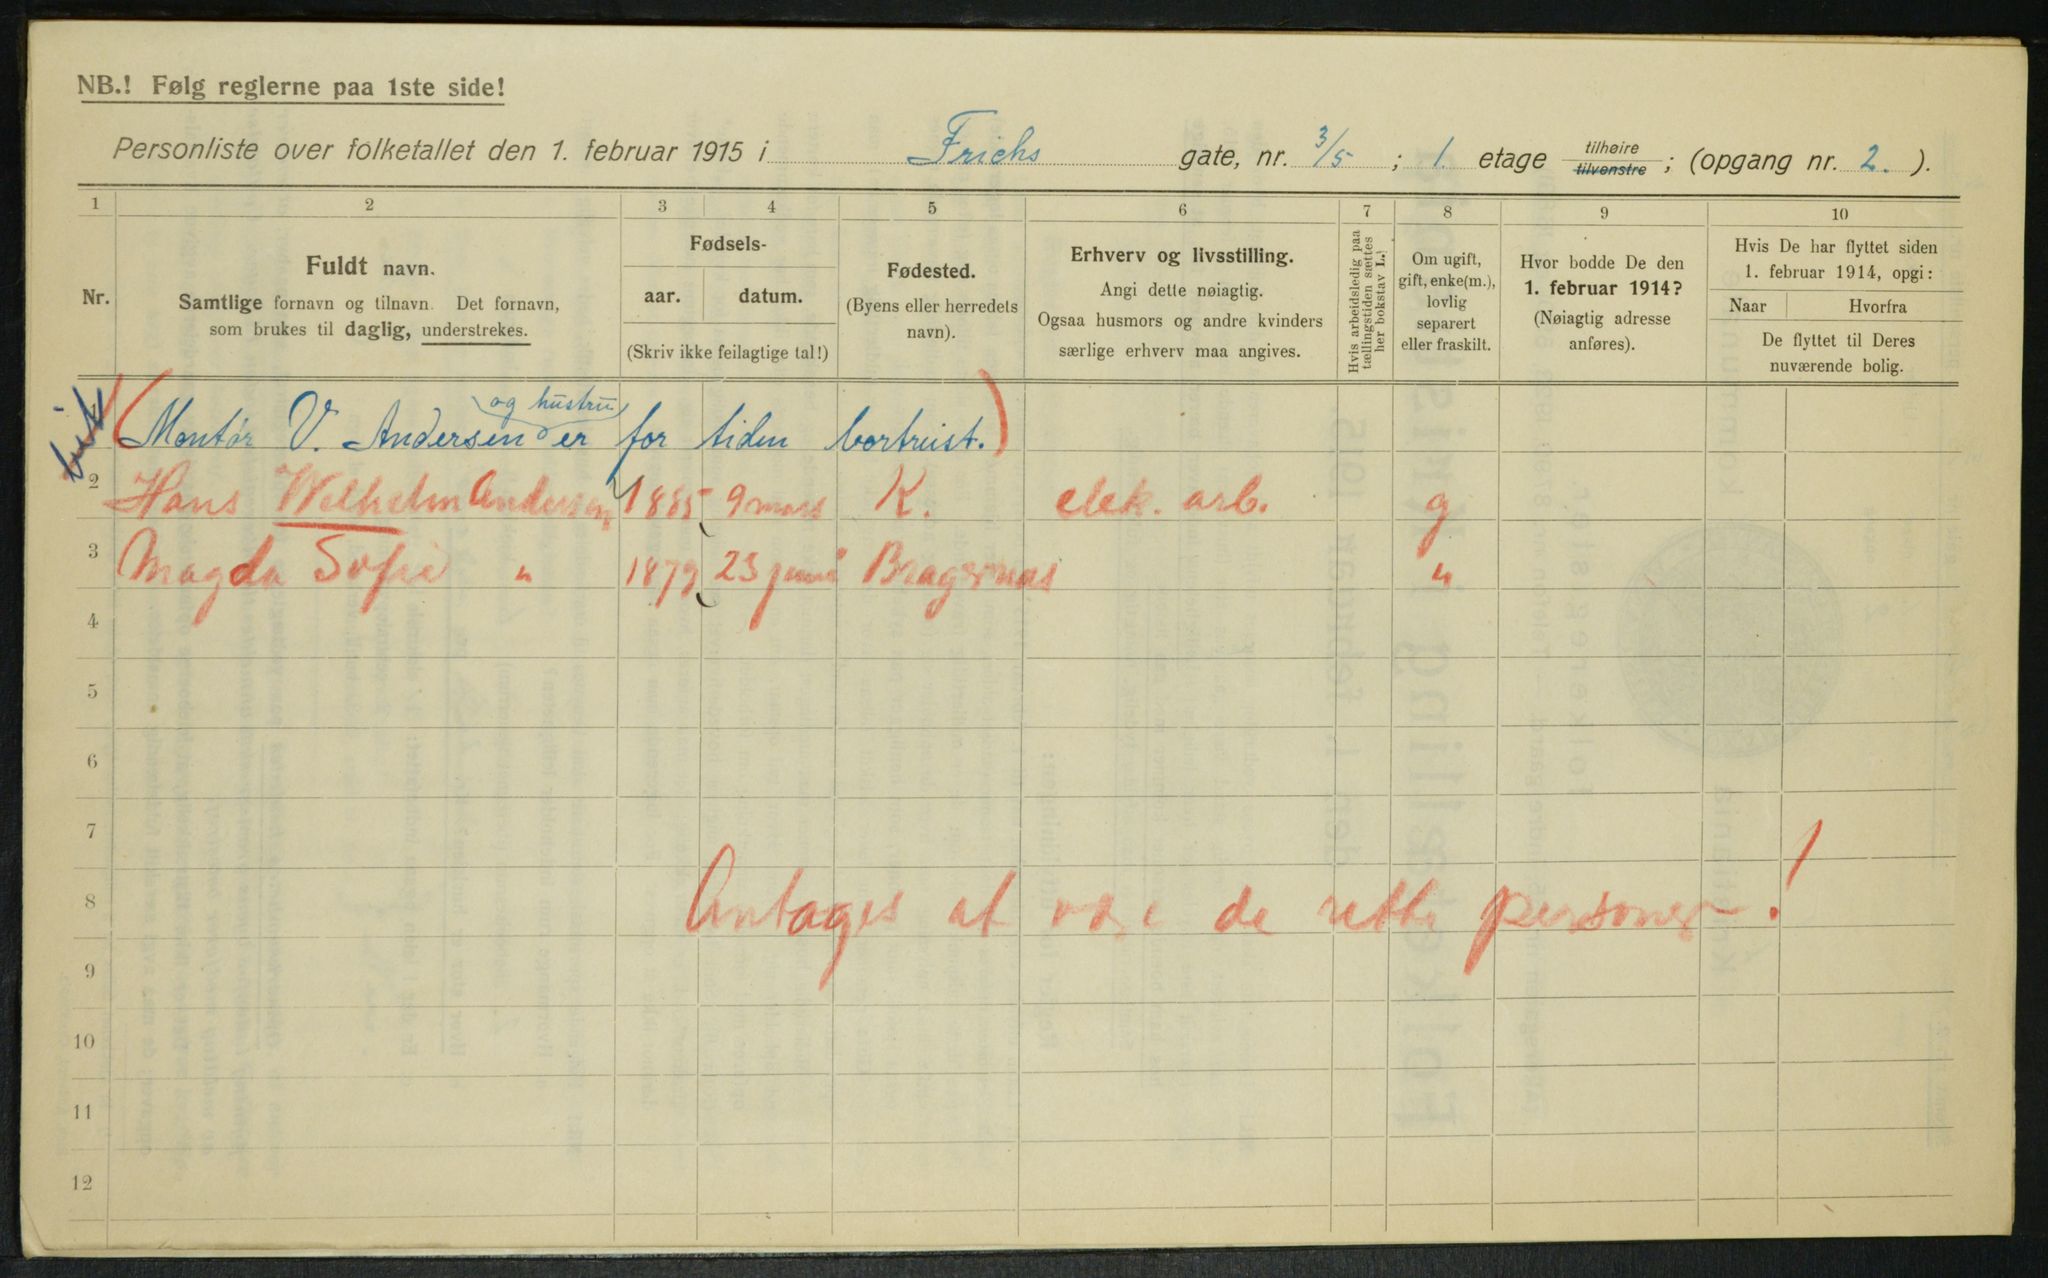 NB.! Følg reglerne paa 1ste side!
Personliste over folketallet den 1. februar 1915 i Frichs gate, nr. 3/5 ; 1. etage tilhøire tilvenstre ; (opgang nr. 2. ).
1 2 3 4 5 6 7 8 9 10
Nr.
Fuldt navn.
Samtlige fornavn og tilnavn. Det fornavn,
som brukes til daglig, understrekes.
Fødsels-
aar. datum.
(Skriv ikke feilagtige tal!)
Fødested.
(Byens eller herredets
navn).
Erhverv og livsstilling.
Angi dette nøiagtig.
Ogsaa husmors og andre kvinders
særlige erhverv maa angives.
Hvis arbeidsledig paa
tællingstiden sættes
her bokstav L.!
Om ugift,
gift, enke(m.),
lovlig
separert
eller fraskilt.
Hvor bodde De den
1. februar 1914?
(Nøiagtig adresse
anføres).
Hvis De har flyttet siden
1. februar 1914, opgi:
Naar Hvorfra
De flyttet til Deres
nuværende bolig.
og hustru
(Montør V. Andersen er for tiden bortreist.)
2 Hans Wilhelm Andersen 1885 9 mars K. elek. arb. g
3 Magda Sofie " 1879 23 juni Bragernas "
4
5
6
7
8 Antages at være de rette personer!
9
10
11
12